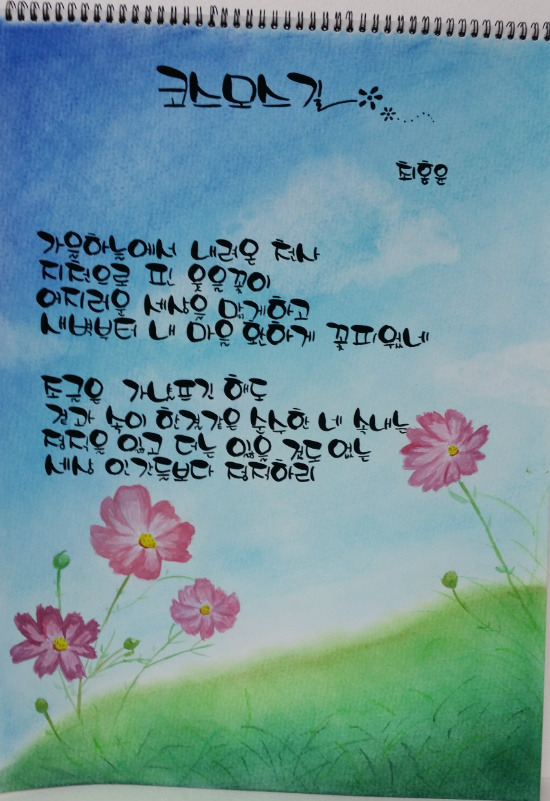 코스모스 길
최홍윤
가을하늘에서 내려온 천사
지천으로 핀 웃음꽃이
어지러운 세상을 맑게하고
새벽부터 내 마음 환하게 꽃피웠네
조금은 가냘프긴 해도
겉과 속이 한결같은 순수한 네 속내는
정적을 안고 더는 잃을 것도 없는
세상 인간들보다 정직하리